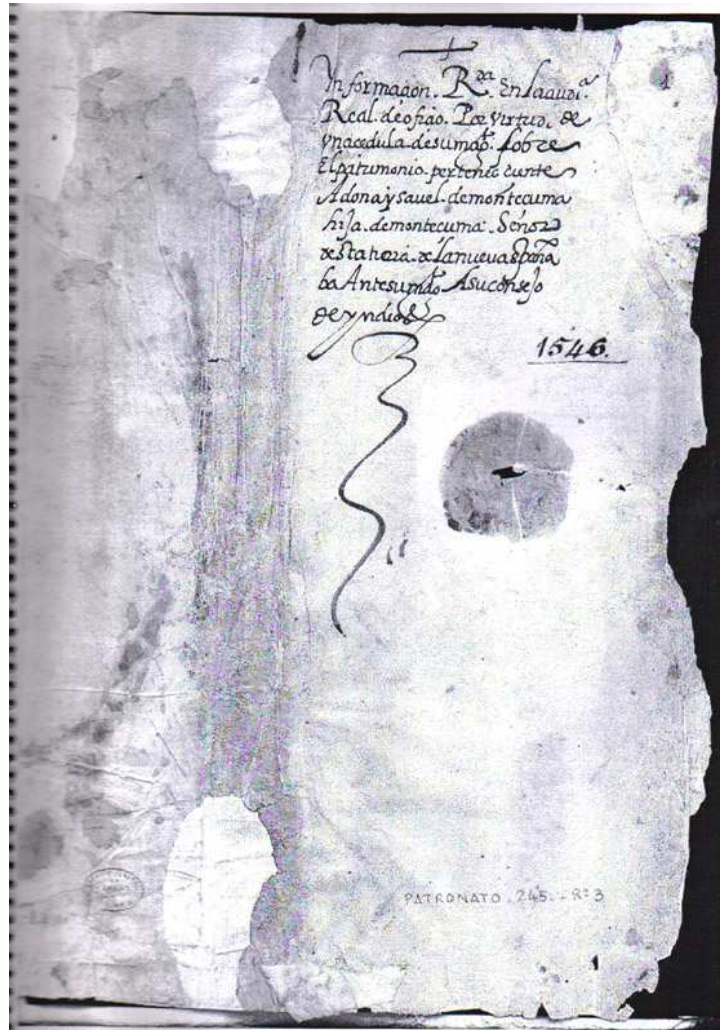 1
Informaçion. Rda. En la audia.
Real. de ofiçio. Por virtud. de
vna cedula de su magt. sobre
El patrimonio. perteneçiente
A doña ysauel. de monteçuma
hija. de monteçuma. Señor
de sta tierra. de la nueua españa
ba Ante su magt. A su consejo
de yndias
1546.
PATRONATO. 245. - Rº 3